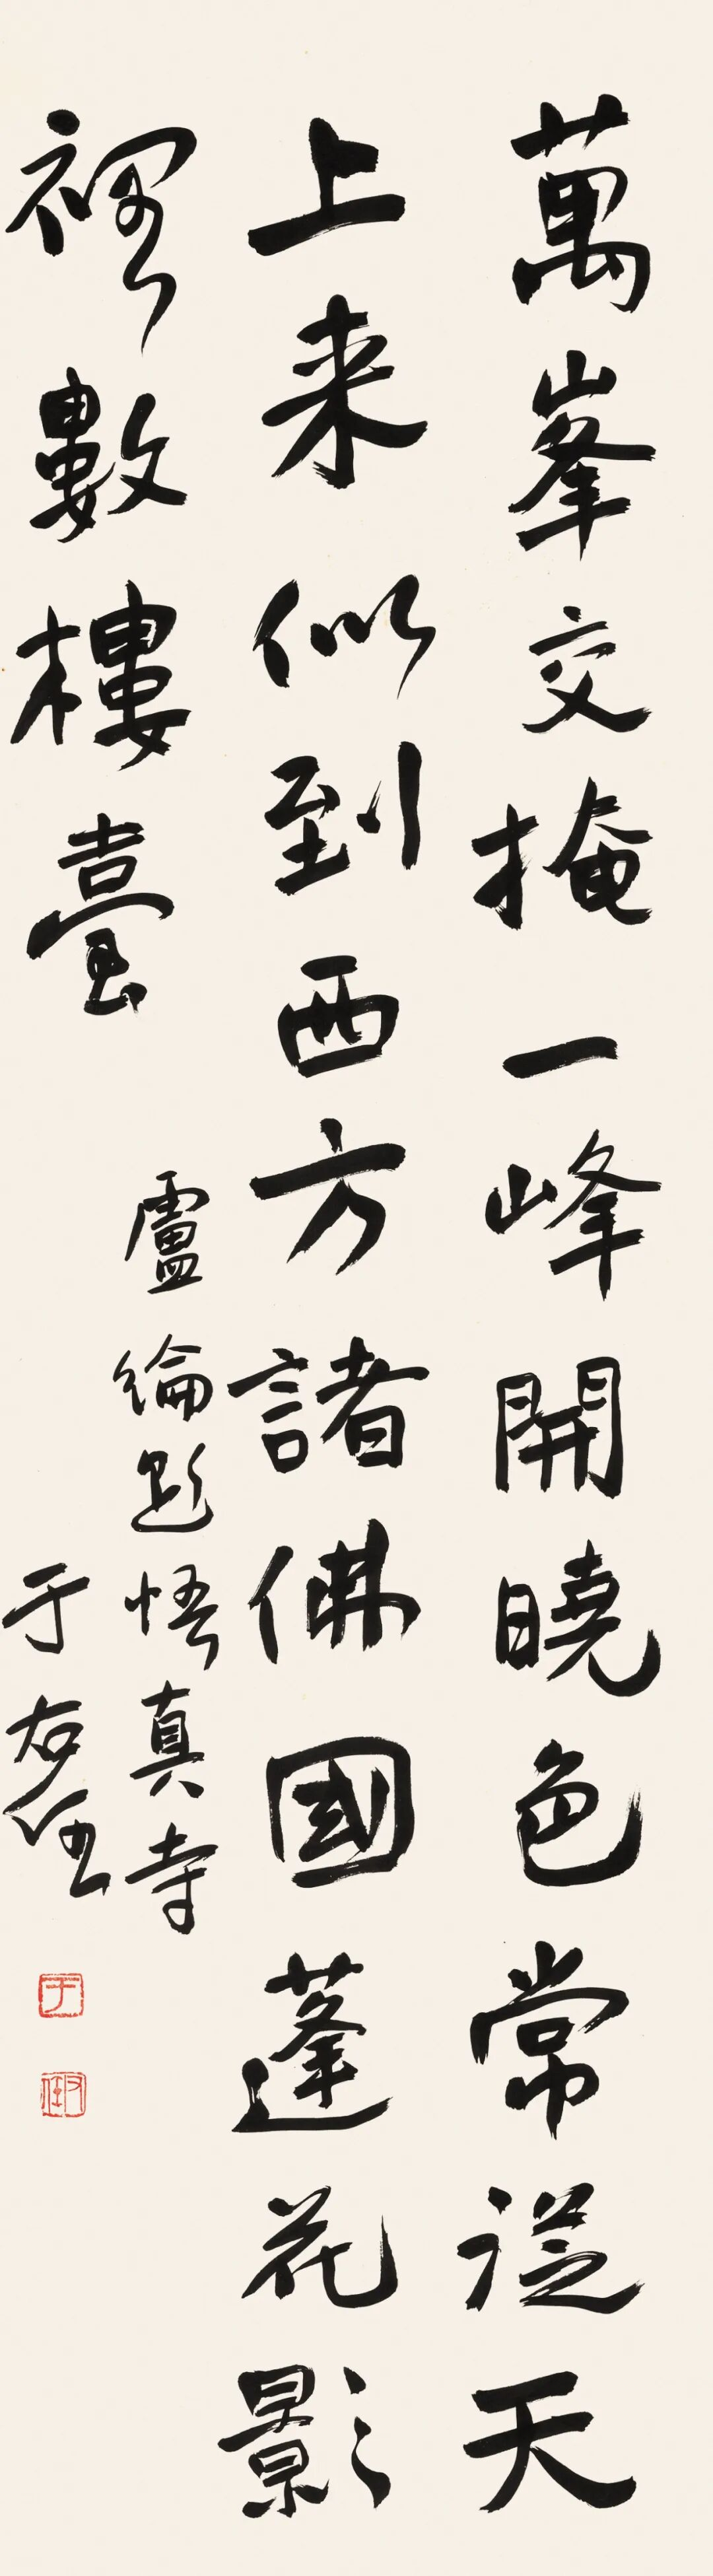 萬峯交掩一峰開曉色常從天
上来似到西方諸佛國蓬花影
裡數樓臺
盧綸題悟真寺
于右任
于
右任